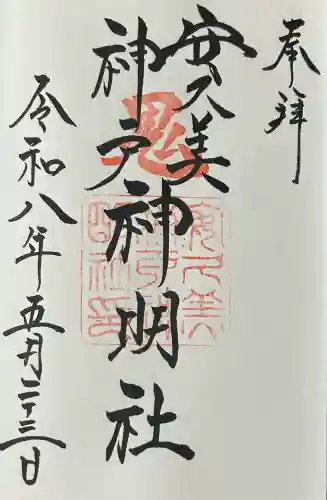 奉拝
安久美
神戸神明社
令和八年五月二十三日
鬼
安久美
神戸神
明社印